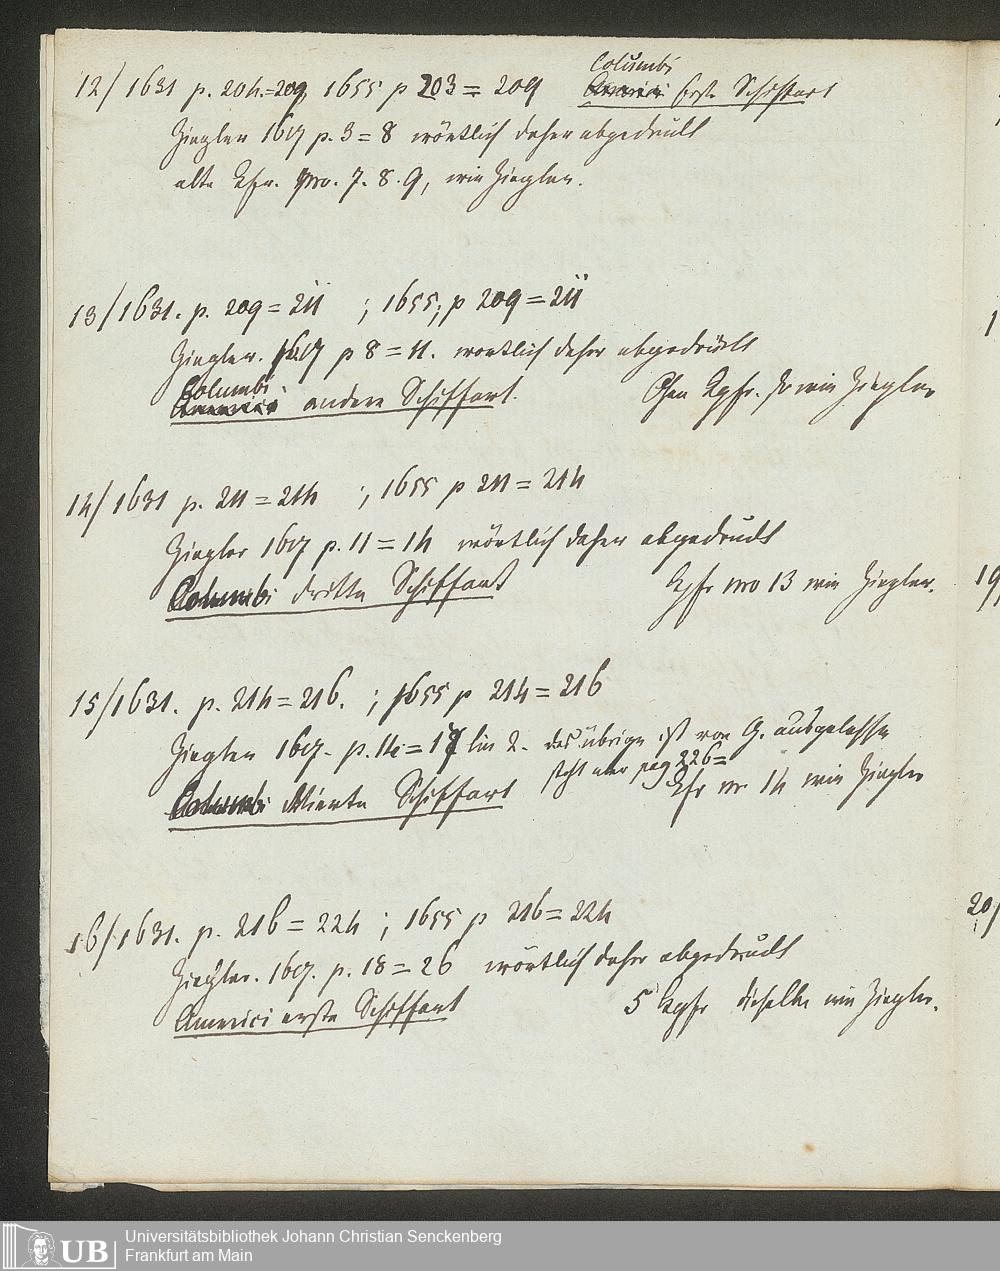 12/ 1631 p. 204.=209, 1655 p 203 = 209 Columbi Erste Schiffart
Ziegler 1617 p. 3 = 8 wörtlich daher abgedrukt
alte Kfr. 7. 8. 9, wie Ziegler.
13/ 1631. p. 209 = 211 ; 1655; p 209 = 211
Ziegler. 1617 p 8 = 11. wortlich daher abgedrükt
Columbi andere Schiffart. Ohne Kpfr. so wie Ziegler
14/ 1631 p. 211 = 214 ; 1655 p 211 = 214
Ziegler 1617 p. 11 = 14 wörtlich daher abgedrudt
Columbi dritte Schiffart Kpfr nro 13 wie Ziegler.
15/ 1631. p. 214 = 216. ; 1655 p 214 = 216
Ziegler 1617. p. 14 = 17 lin 2. das übrige ist von G. ausgelassen
steht aber pag 226=
Columbi Vierte Schiffart Kfr nr 14 wie Ziegler
16/ 1631. p. 216 = 224 ; 1655 p 216 = 224
Ziegler. 1617. p. 18 = 26 wörtlich daher abgedrudt
Americi erste Schiffart 5 Kpfr dieselbe wie Ziegler.
19/
20/
UB
Universitätsbibliothek Johann Christian Senckenberg
Frankfurt am Main